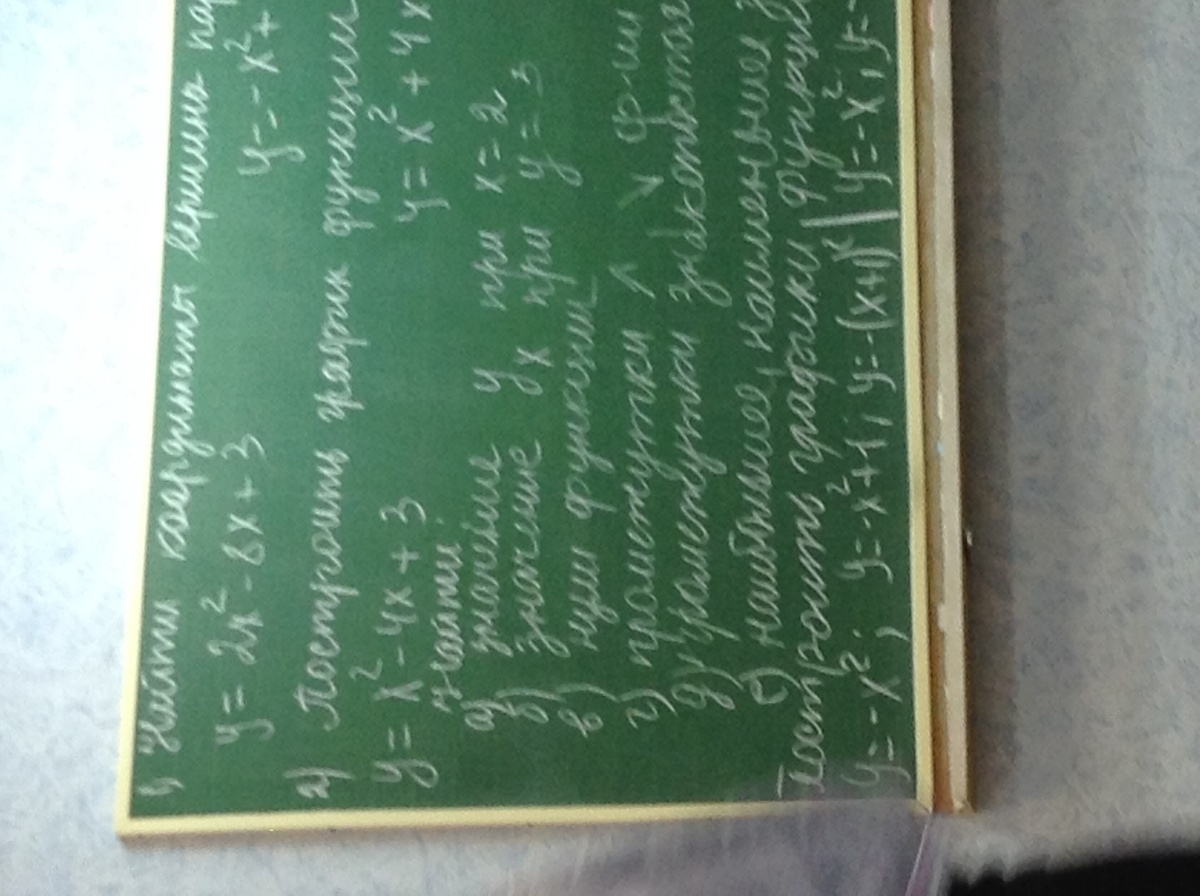 1) Найти координаты вершин
y = 2x² - 8x + 3 y = -x² +
2) Построить график функции
y = x² - 4x + 3 y = x² + 4x
Найти:
а) значение y при x = 2
б) значение x при y = 3
в) нули функции
г) промежутки ∧ ∨ ф-ии
д) промежутки знакопостоя
е) наибольшее, наименьшее
Построить графики функций
y = -x²; y = -x² + 1; y = -(x+1)² | y = -x²; y = -